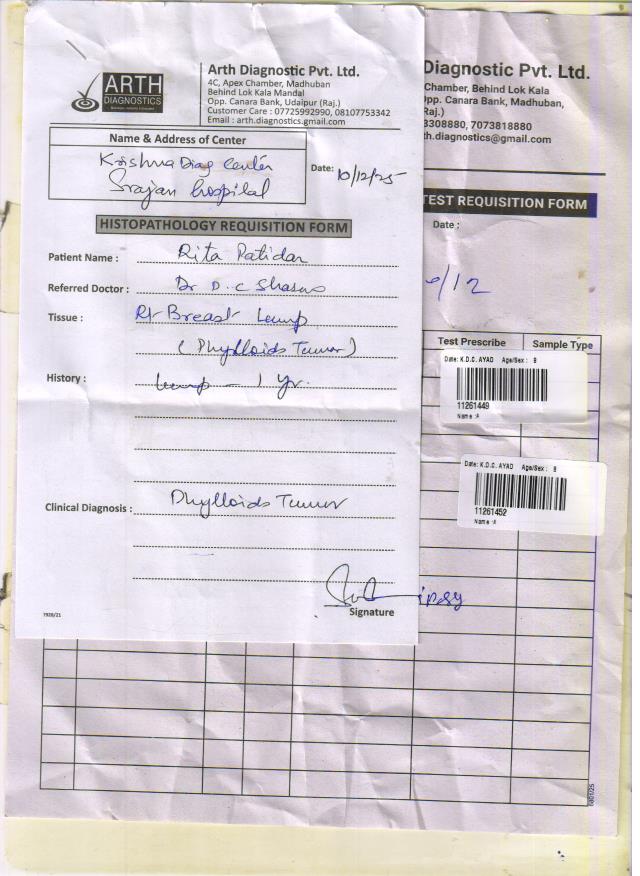 ARTH
DIAGNOSTICS
Arth Diagnostic Pvt. Ltd.
4C, Apex Chamber, Madhuban
Behind Lok Kala Mandal
Opp. Canara Bank, Udaipur (Raj.)
Customer Care : 07725992990, 08107753342
Email : arth.diagnostics.gmail.com
Name & Address of Center
Krishna Diag Center
Srajan hospital
Date: 10/12/25
HISTOPATHOLOGY REQUISITION FORM
Patient Name : Rita Patidar
Referred Doctor : Dr D.C
Tissue : Rt Breast Lump
(Phylloids Tumor)
History : Lump - 1 yr.
Clinical Diagnosis : Phylloids Tumor
Signature
7920/21
Diagnostic Pvt. Ltd.
Chamber, Behind Lok Kala
Opp. Canara Bank, Madhuban,
Raj.)
3308880, 7073818880
th.diagnostics@gmail.com
TEST REQUISITION FORM
Date :
/12
Test Prescribe Sample Type
Date: K.D.C. AYAD Age/Sex : B
11261449
Name :A
Date: K.D.C. AYAD Age/Sex : B
11261452
Name :A
iopsy